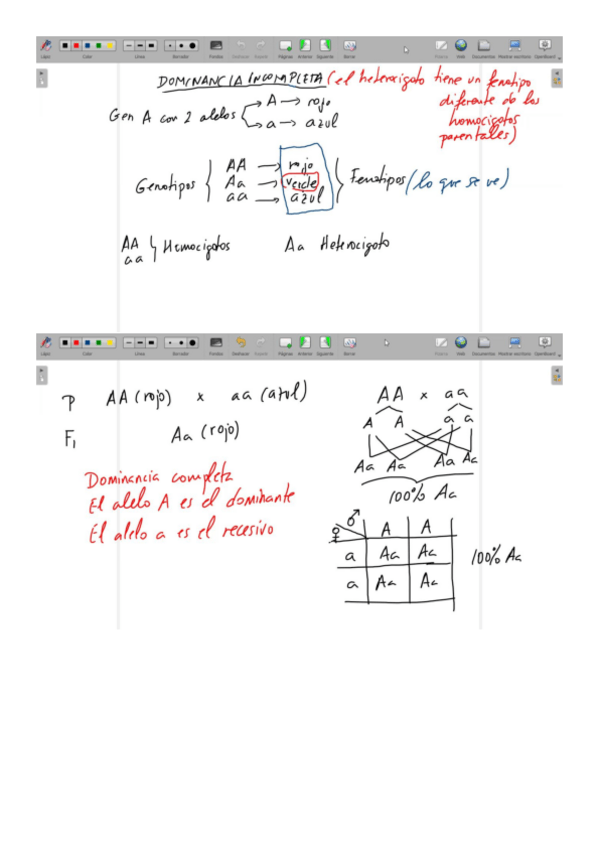 Lápiz Color Línea Borrador Fondos Deshacer Rehacer Páginas Anterior Siguiente Borrar Pizarra Web Documentos Mostrar escritorio OpenBoard
DOMINANCIA INCOMPLETA (el heterocigoto tiene un fenotipo
diferente de los
homocigotos
parentales)
Gen A con 2 alelos
A → rojo
a → azul
Genotipos
AA → rojo
Aa → verde
aa → azul
Fenotipos (lo que se ve)
AA
aa
Homocigotos
Aa Heterocigoto
Lápiz Color Línea Borrador Fondos Deshacer Rehacer Páginas Anterior Siguiente Borrar Pizarra Web Documentos Mostrar escritorio OpenBoard
P AA (rojo) x aa (azul)
F1 Aa (rojo)
Dominancia completa
El alelo A es el dominante
El alelo a es el recesivo
AA x aa
A A a a
Aa Aa Aa Aa
100% Aa
♀ ♂ A A
a Aa Aa
a Aa Aa
100% Aa